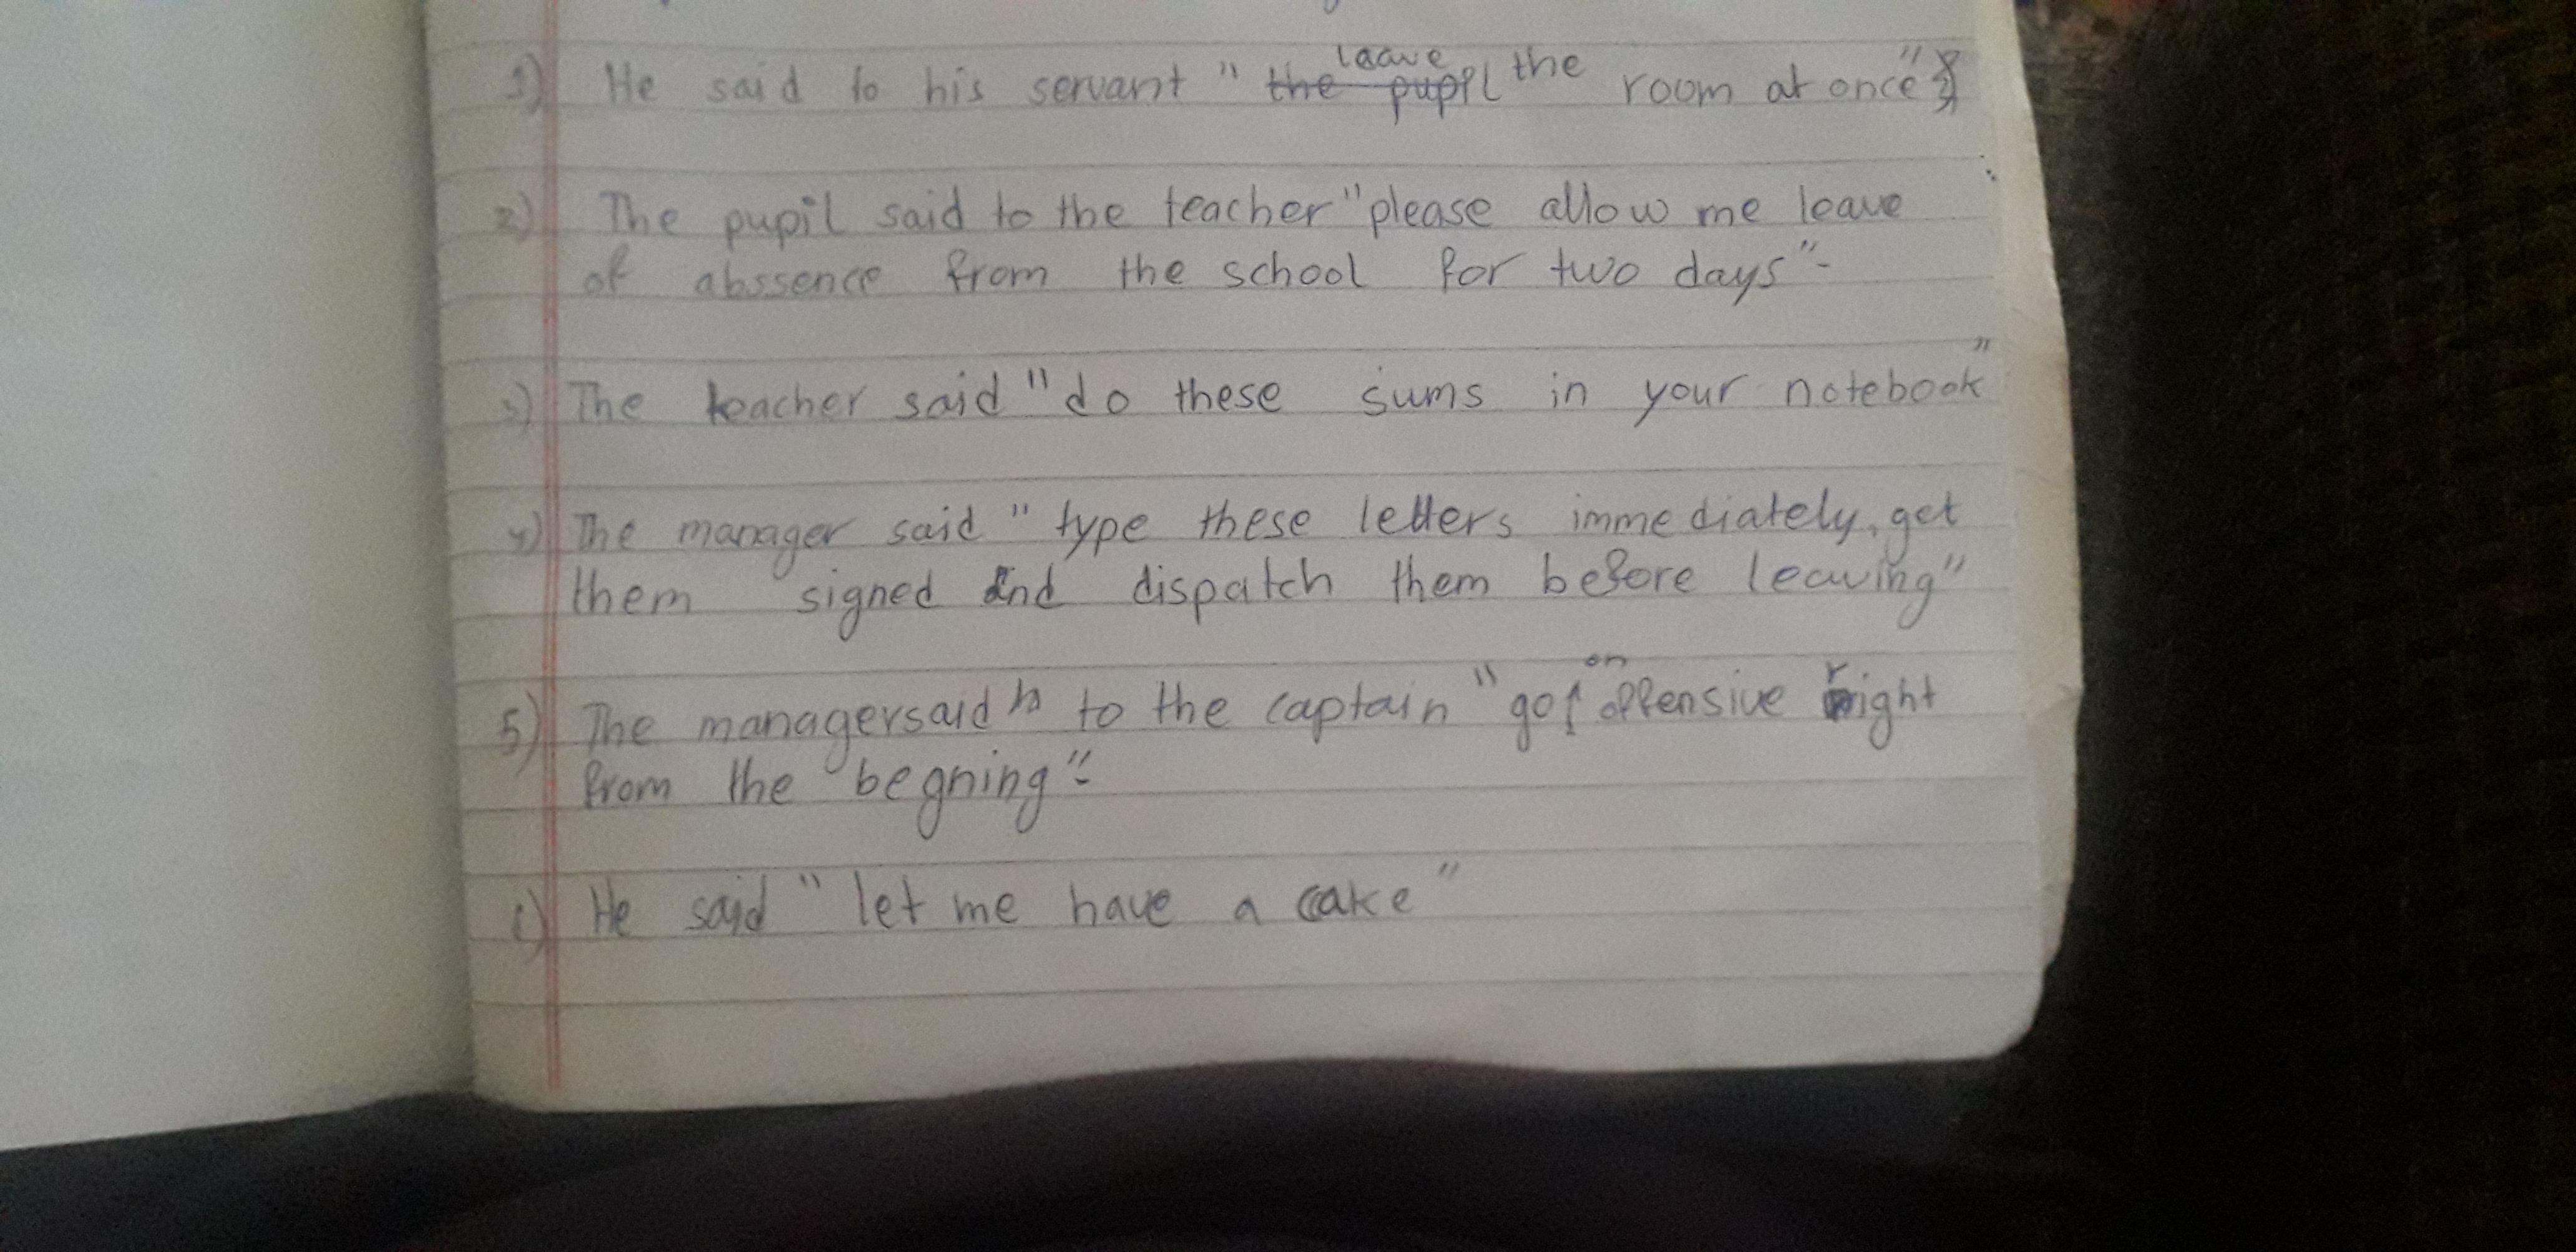 1) He said to his servant " leave the room at once"
2) The pupil said to the teacher "please allow me leave
of abssence from the school for two days"-
3) The teacher said "do these sums in your notebook"
4) The manager said " type these letters immediately, get
them signed and dispatch them before leaving"
5) The manager said to the captain "go on offensive right
from the begning".
He said " let me have a cake "